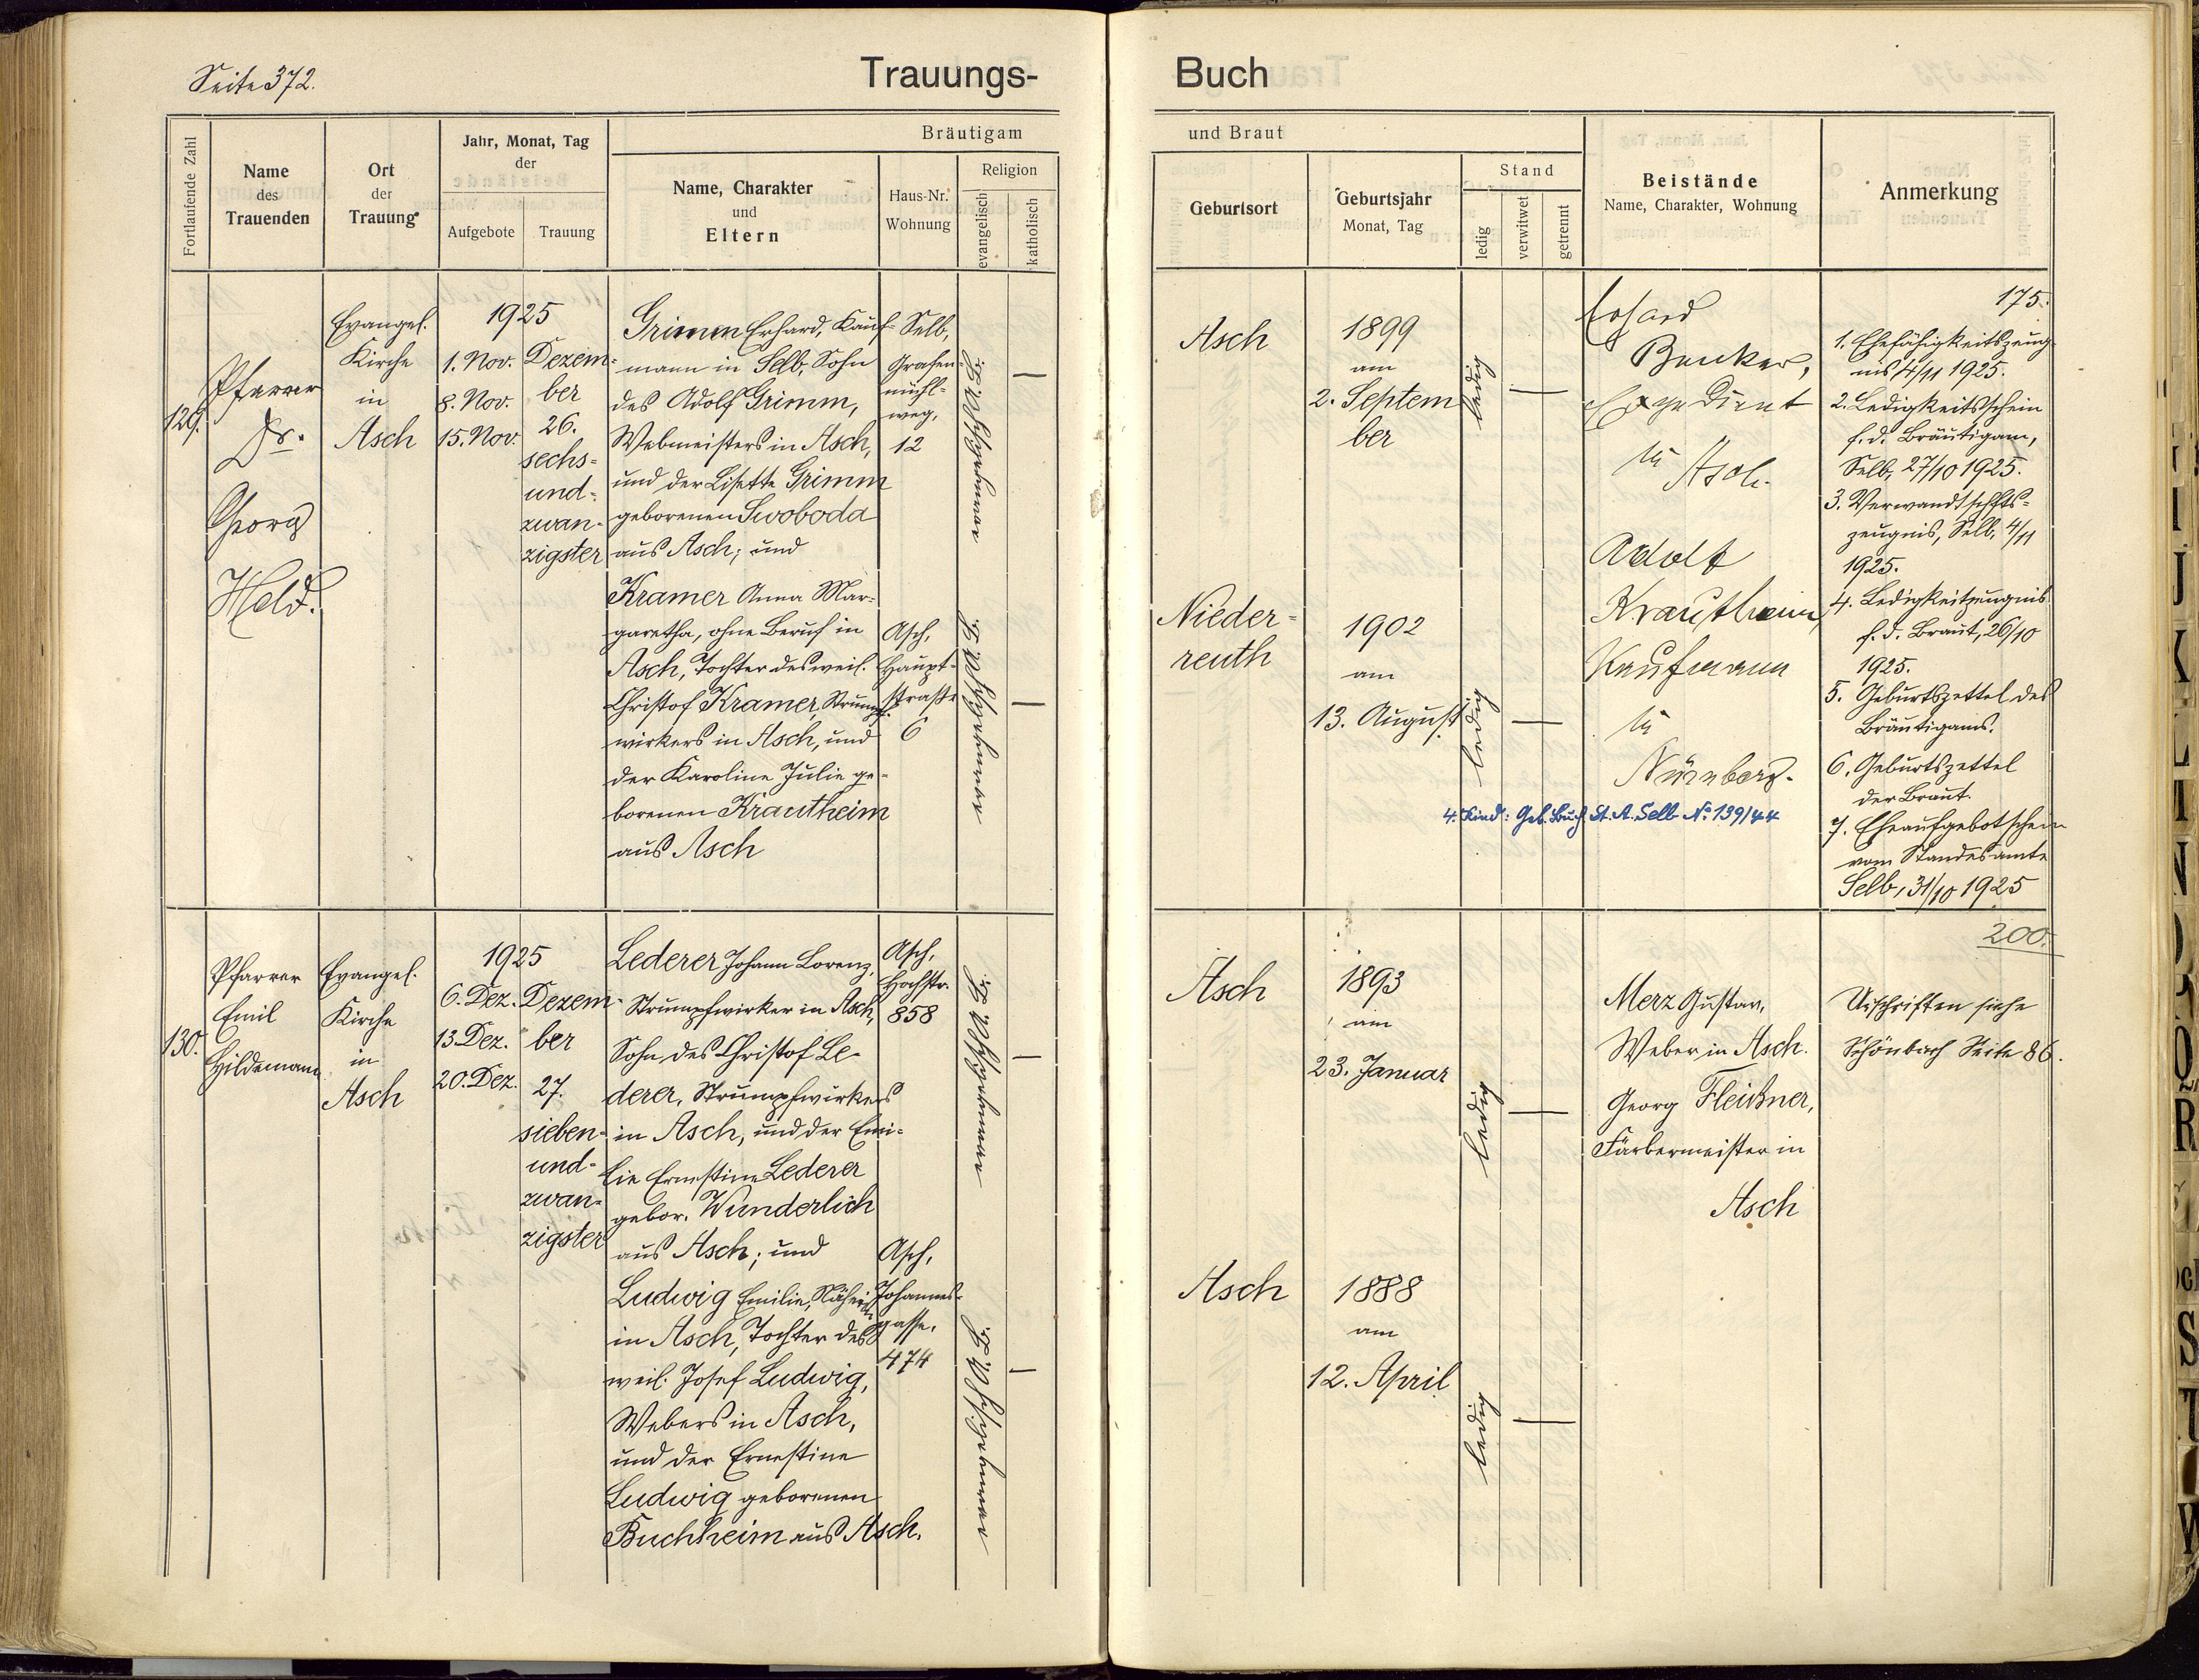 Seite 372.
Trauungs-
Buch
Fortlaufende Zahl
Name
des
Trauenden
Ort
der
Trauung
Jahr, Monat, Tag
der
Aufgebote
Trauung
Bräutigam
Name, Charakter
und
Eltern
Haus-Nr.
Wohnung
Religion
evangelisch
katholisch
und Braut
Geburtsort
Geburtsjahr
Monat, Tag
Stand
ledig
verwitwet
getrennt
Beistände
Name, Charakter, Wohnung
Anmerkung
129.
Pfarrer
Dr.
Georg
Held.
Evangel.
Kirche
in
Asch
1925
1. Nov.
8. Nov.
15. Nov.
Dezem-
ber
26.
sechs-
und-
zwan-
zigster
Grimm Erhard, Kauf-
mann in Selb, Sohn
des Adolf Grimm,
Webmeisters in Asch,
und der Lisette Grimm
geborenen Swoboda
aus Asch; und
Kramer Anna Mar-
garetha, ohne Beruf in
Asch, Tochter des weil.
Christof Kramer, Strumpf-
wirkers in Asch, und
der Karoline Julie ge-
borenen Krautheim
aus Asch
Selb,
Grafen-
mühl-
weg,
12
Asch,
Haupt-
straße
6
Asch
1899
am
2. Septem
ber
ledig
Nieder-
reuth
1902
am
13. August
ledig
Erhard
Expedient
in
Asch.
Adolf
Krautheim,
Kaufmann
in
Nürnberg.
4. Kind: Geb. Buch St. A. Selb No 139/44
175.
1. Ehefähigkeitszeug-
nis 4/11 1925.
2. Ledigkeitsschein
f. d. Bräutigam,
Selb, 27/10 1925.
3. Verwandtschfts-
zeugnis, Selb, 4/11
1925.
4. Ledigkeitzeugnis
f. d. Braut, 26/10
1925.
5. Geburtszettel des
Bräutigams.
6. Geburtszettel
der Braut.
7. Eheaufgebotschein
vom Standesamte
Selb, 31/10 1925
130.
Pfarrer
Emil
Hildemann
Evangel.
Kirche
in
Asch
1925
6. Dez.
13. Dez.
20. Dez.
Dezem-
ber
27.
sieben-
und-
zwan-
zigster
Lederer Johann Lorenz,
Strumpfwirker in Asch,
Sohn des Christof Le-
derer, Strumpfwirkers
in Asch, und der Emi-
lie Ernestine Lederer
gebor. Wunderlich
aus Asch; und
Ludwig Emilie, Näherin
in Asch, Tochter des
weil. Josef Ludwig,
Webers in Asch,
und der Ernestine
Ludwig geborenen
Buchheim aus Asch.
Asch,
Hochstr.
858
Asch,
Johannes-
gasse,
474
Asch
1893
am
23. Januar
ledig
Asch
1888
am
12. April
ledig
Merz Gustav,
Weber in Asch.
Georg Fleißner,
Färbermeister in
Asch
200.
Urschriften siehe
Schönbach Seite 86.